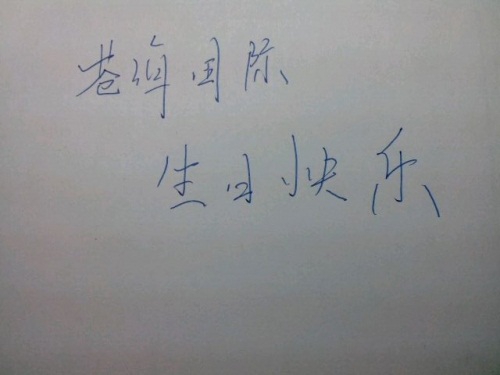 苍穹国际
生日快乐